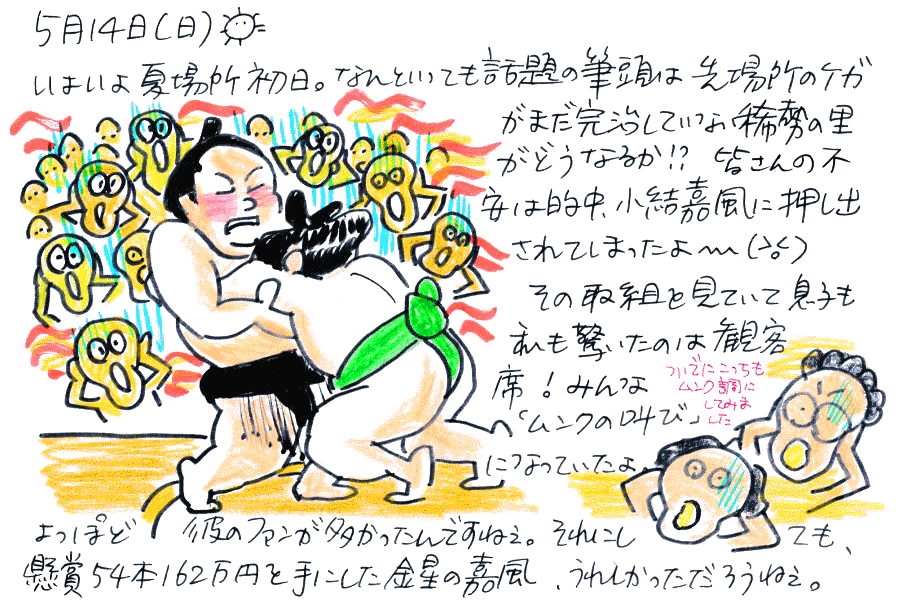 5月14日(日)
いよいよ夏場所初日。なんといっても話題の筆頭は先場所のケガ
がまだ完治していない稀勢の里
がどうなるか!? 皆さんの不
安は的中、小結嘉風に押し出
されてしまったよ〜(>o<)
その取組を見ていて息子も
私も驚いたのは観客
席!みんな
「ムンクの叫び」
になっていたよ。
ついでにこっちも
ムンク調に
してみま
した
よっぽど彼のファンが多かったんですねぇ。それにしても、
懸賞54本162万円を手にした金星の嘉風、うれしかっただろうねぇ。